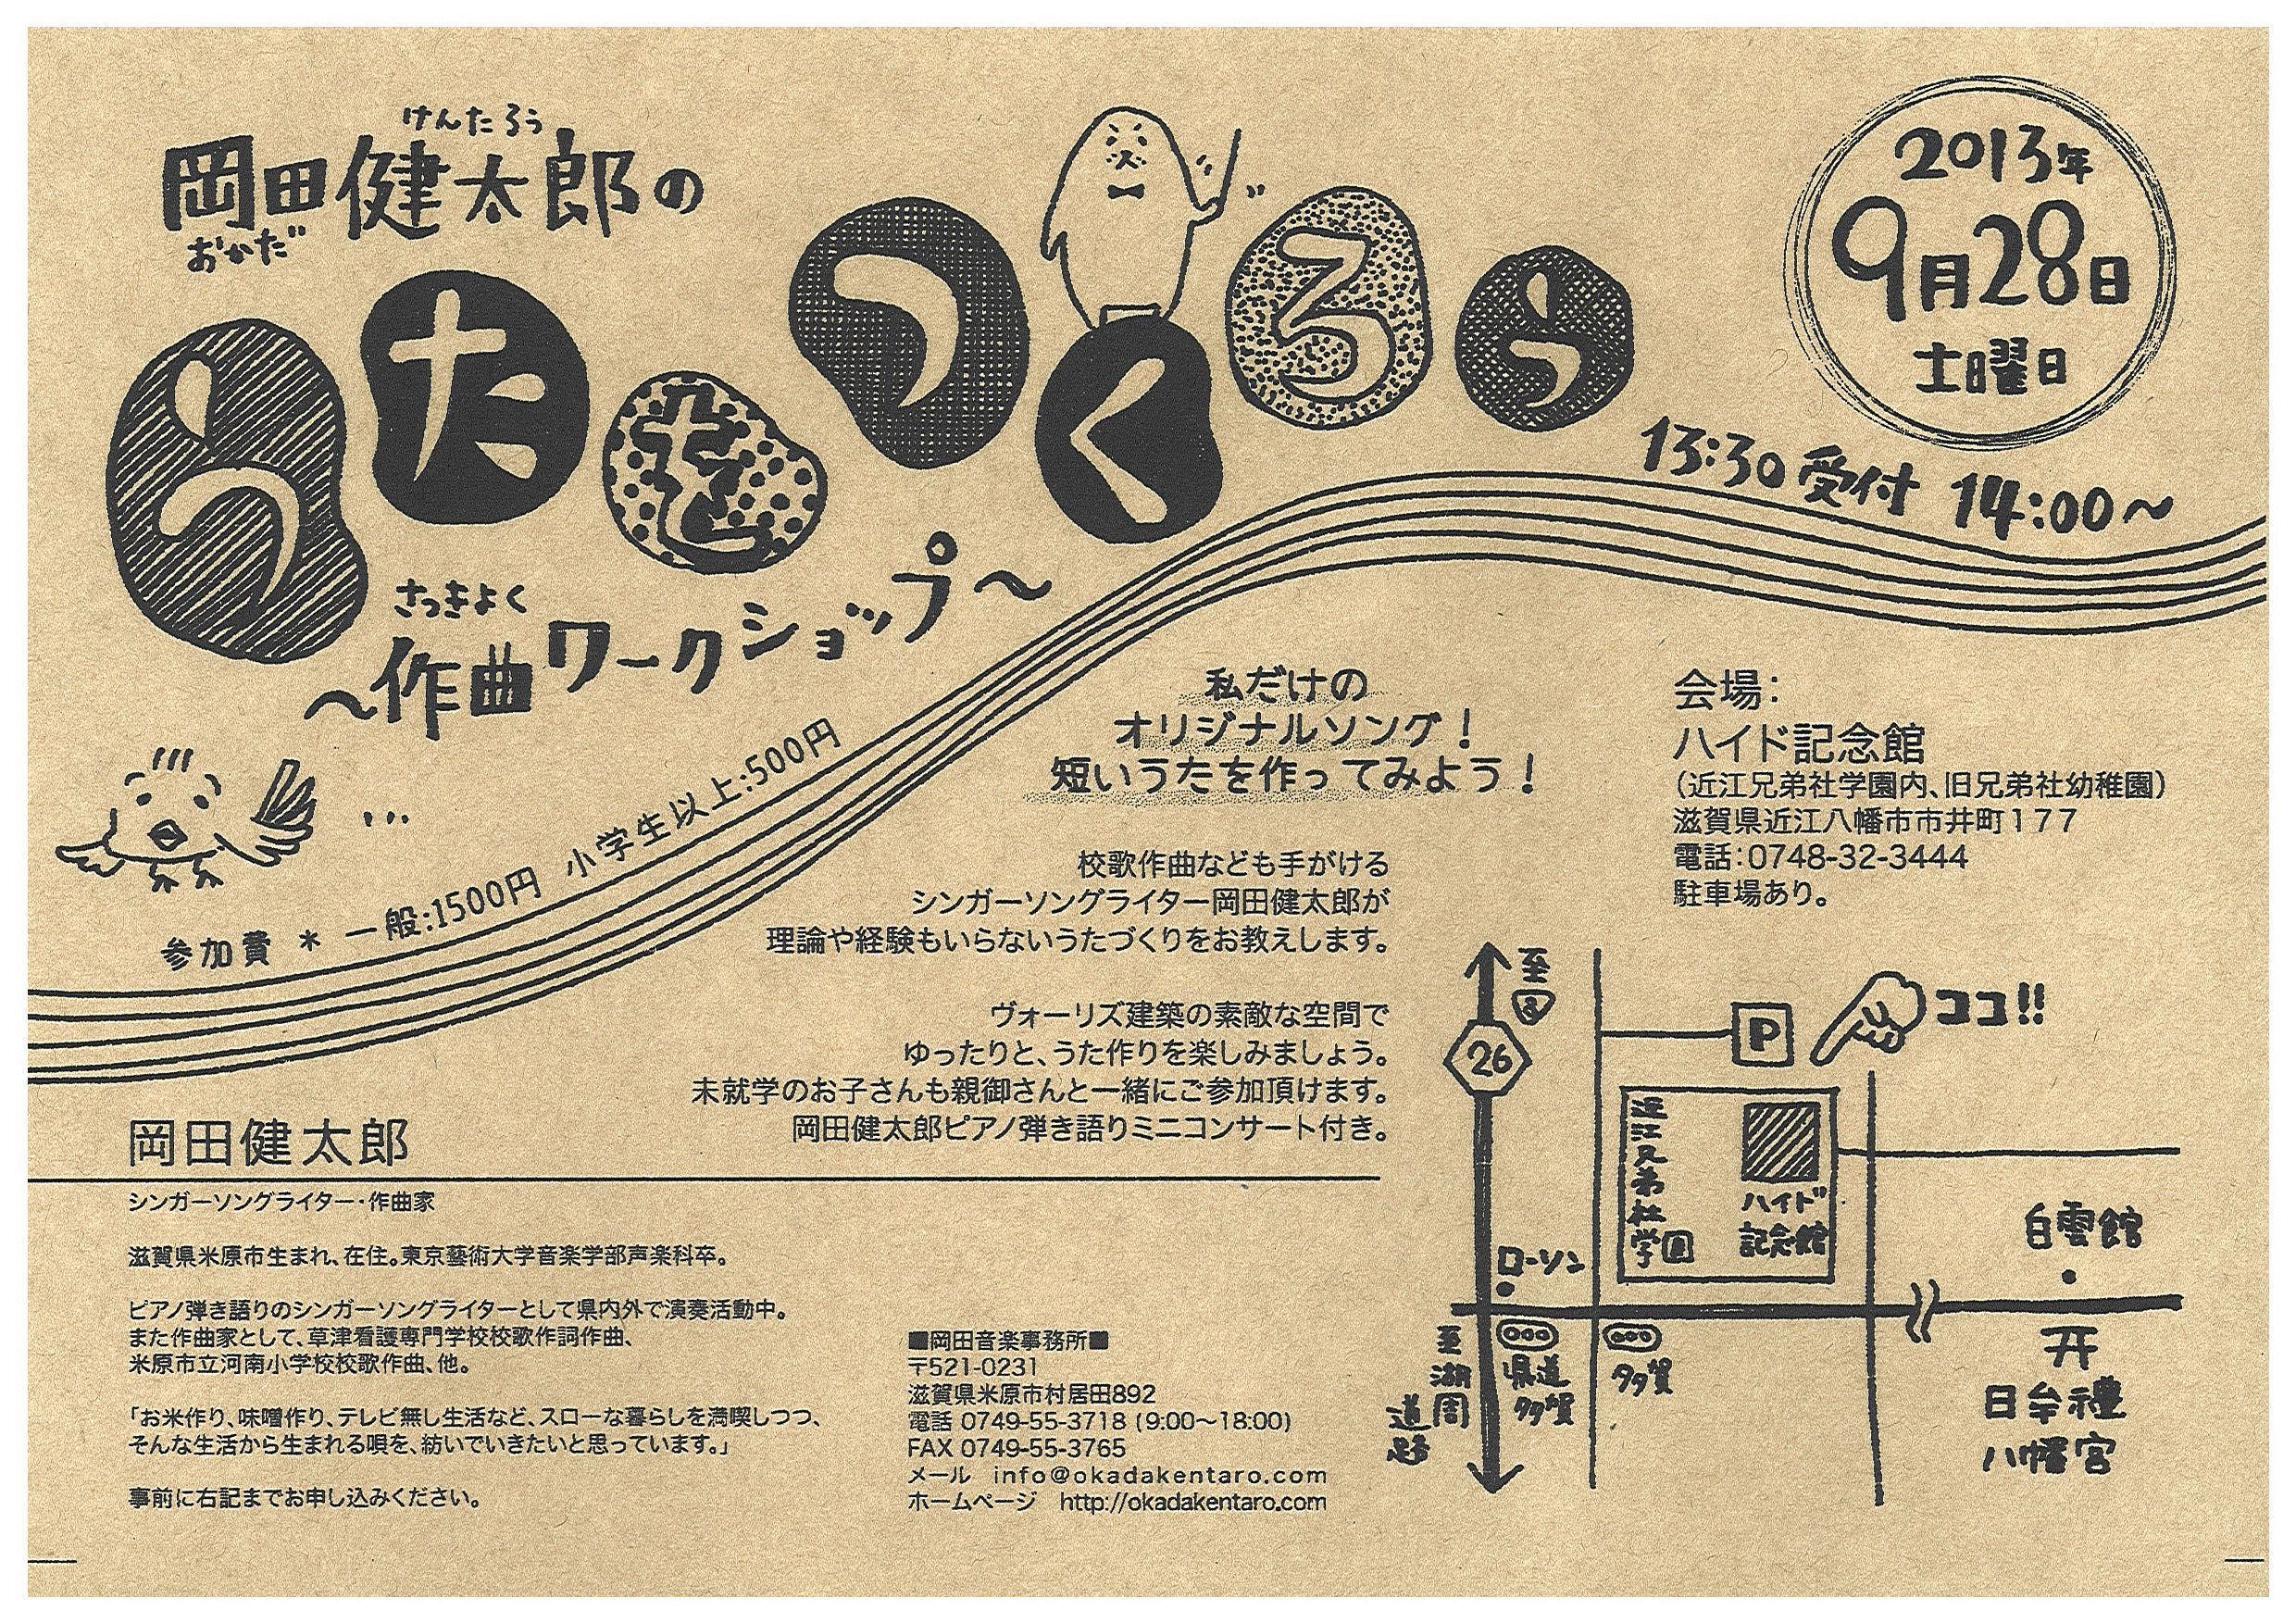 けんたろう
岡田健太郎の
おかだ
うたをつくろう
さっきょく
～作曲ワークショップ～
2013年
9月28日
土曜日
13:30受付 14:00～
参加費 * 一般:1500円 小学生以上:500円
私だけの
オリジナルソング!
短いうたを作ってみよう!
校歌作曲なども手がける
シンガーソングライター岡田健太郎が
理論や経験もいらないうたづくりをお教えします。
ヴォーリズ建築の素敵な空間で
ゆったりと、うた作りを楽しみましょう。
未就学のお子さんも親御さんと一緒にご参加頂けます。
岡田健太郎ピアノ弾き語りミニコンサート付き。
会場:
ハイド記念館
(近江兄弟社学園内、旧兄弟社幼稚園)
滋賀県近江八幡市市井町177
電話:0748-32-3444
駐車場あり。
至
8
26
P
ココ!!
近江兄弟社学園
ハイド
記念館
白雲館
ローソン
至湖周
道路
県道
多賀
多賀
日牟禮
八幡宮
岡田健太郎
シンガーソングライター・作曲家
滋賀県米原市生まれ、在住。東京藝術大学音楽学部声楽科卒。
ピアノ弾き語りのシンガーソングライターとして県内外で演奏活動中。
また作曲家として、草津看護専門学校校歌作詞作曲、
米原市立河南小学校校歌作曲、他。
「お米作り、味噌作り、テレビ無し生活など、スローな暮らしを満喫しつつ、
そんな生活から生まれる唄を、紡いでいきたいと思っています。」
事前に右記までお申し込みください。
■岡田音楽事務所■
〒521-0231
滋賀県米原市村居田892
電話 0749-55-3718 (9:00～18:00)
FAX 0749-55-3765
メール info@okadakentaro.com
ホームページ http://okadakentaro.com